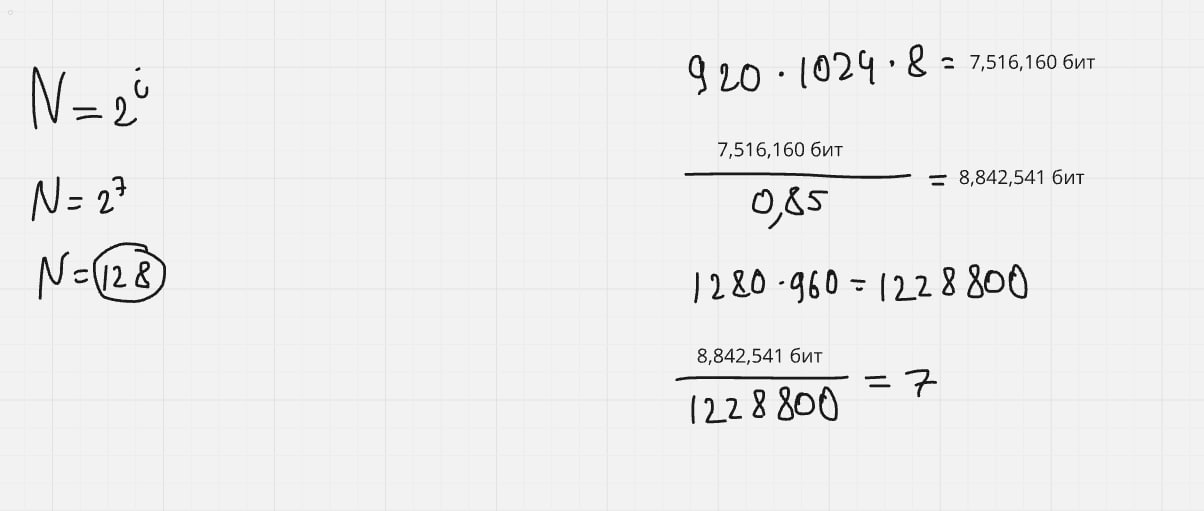 N = 2^i
N = 2^7
N = 128
920 · 1024 · 8 = 7,516,160 бит
7,516,160 бит
0,85
= 8,842,541 бит
1280 · 960 = 1228800
8,842,541 бит
1228800
= 7